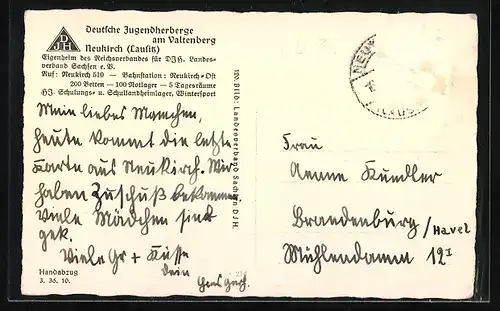 Deutsche Jugendherberge
am Valtenberg
Neukirch (Lausitz)
Eigenheim des Reichsverbandes für DJH. Landes-
verband Sachsen e. V.
Ruf: Neukirch 510 — Bahnstation: Neukirch-Ost
200 Betten — 100 Notlager — 5 Tagesräume
HJ. Schulungs- u. Schullandheimlager, Wintersport
Mein liebes Mamchen,
heute kommt die letzte
Karte aus Neukirch. Wir
haben Zuschuß bekommen.
Viele Mädchen sind
gek.
Viele Gr + Küsse
Dein
Handabzug
3. 36. 10.
Landesverband Sachsen DJH.
Frau
Aenne Kundler
Brandenburg/Havel
Mühlendamm 12 I